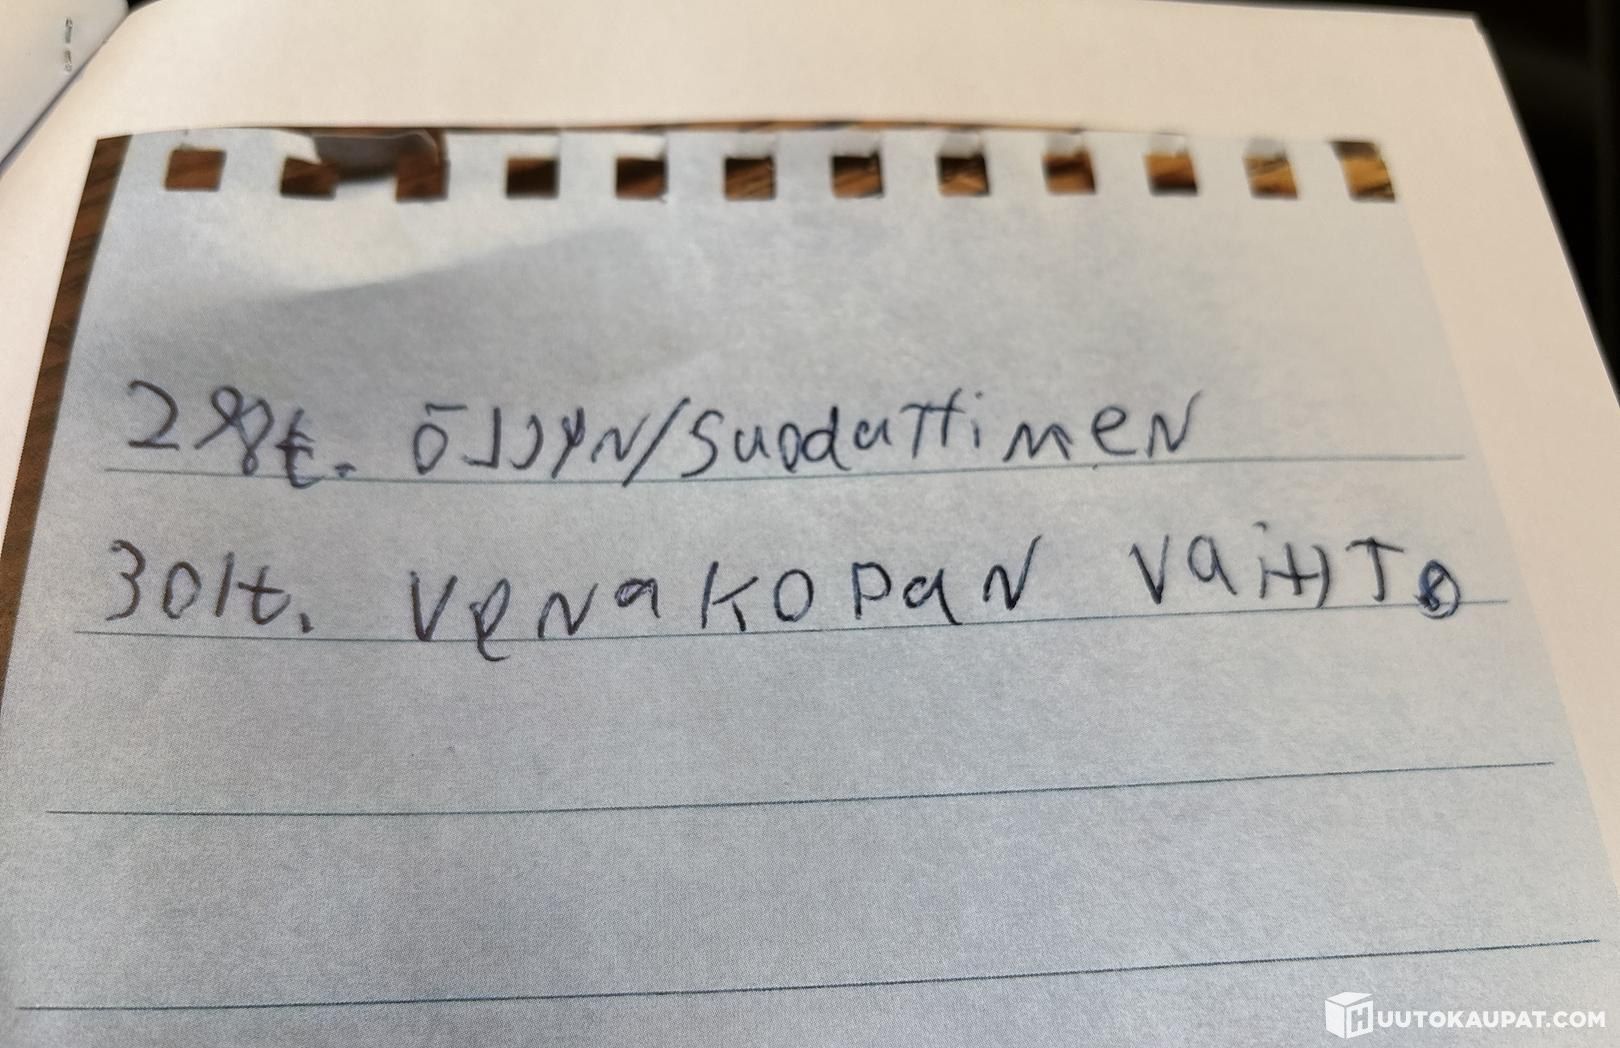 28t. öljyn/suodattimen
301t. venakopan vaihto
HUUTOKAUPAT.COM